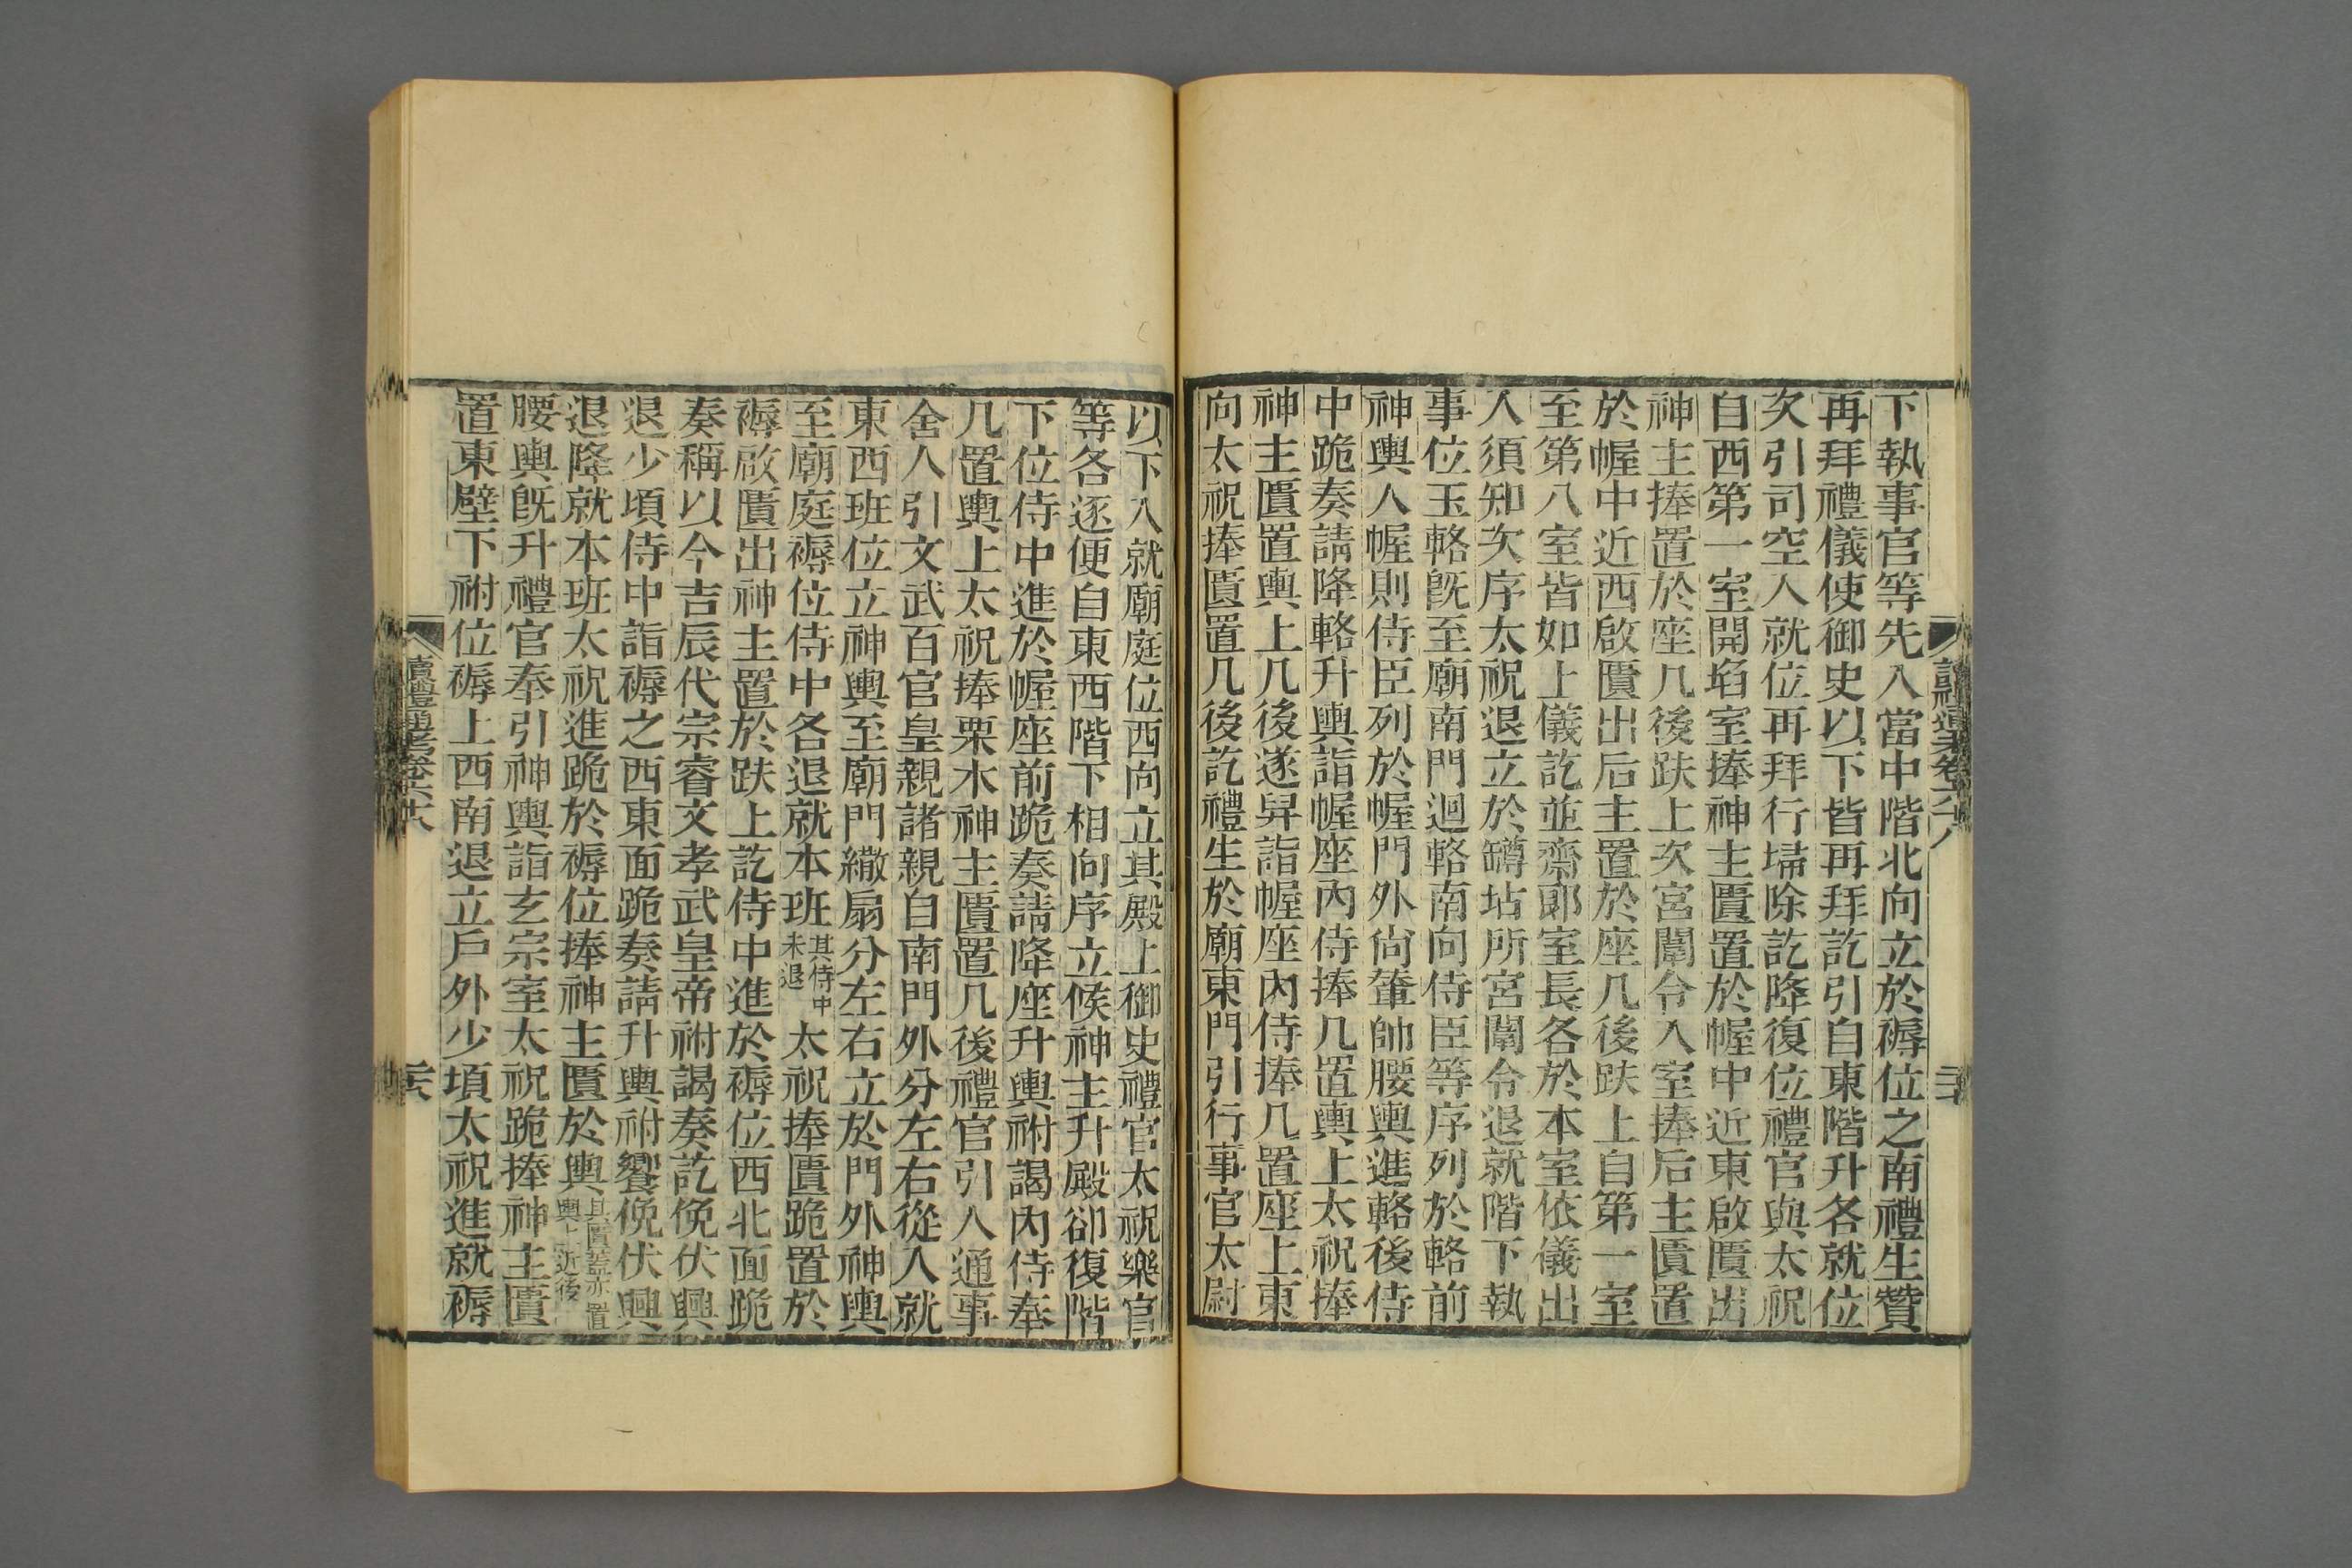 下執事官等先入當中階北向立於褥位之南禮生贊
再拜禮儀使御史以下皆再拜訖引自東階升各就位
次引司空入就位再拜行埽除訖降復位禮官與太祝
自西第一室開埳室捧神主匱置於幄中近東啟匱出
神主捧置於座几後趺上次宮闈令入室捧后主匱置
於幄中近西啟匱出后主置於座几後趺上自第一室
至第八室皆如上儀訖並齋郎室長各於本室依儀出
入須知次序太祝退立於罇坫所宮闈令退就階下執
事位玉輅旣至廟南門迴輅南向侍臣等序列於輅前
神輿入幄則侍臣列於幄門外尙輦帥腰輿進輅後侍
中跪奏請降輅升輿詣幄座內侍捧几置輿上太祝捧
神主匱置輿上几後遂舁詣幄座內侍捧几置座上東
向太祝捧匱置几後訖禮生於廟東門引行事官太尉
以下入就廟庭位西向立其殿上御史禮官太祝樂官
等各逐便自東西階下相向序立候神主升殿卻復階
下位侍中進於幄座前跪奏請降座升輿祔謁內侍奉
几置輿上太祝捧栗木神主匱置几後禮官引人通事
舍人引文武百官皇親諸親自南門外分左右從入就
東西班位立神輿至廟門繖扇分左右立於門外神輿
至廟庭褥位侍中各退就本班其侍中未退太祝捧匱跪置於
褥啟匱出神主置於趺上訖侍中進於褥位西北面跪
奏稱以今吉辰代宗睿文孝武皇帝祔謁奏訖俛伏興
退少頃侍中詣褥之西東面跪奏請升輿祔饗俛伏興
退降就本班太祝進跪於褥位捧神主匱於輿其匱蓋亦置輿上近後
腰輿旣升禮官奉引神輿詣玄宗室太祝跪捧神主匱
置東壁下祔位褥上西南退立戶外少頃太祝進就褥
讀禮通考卷六十八